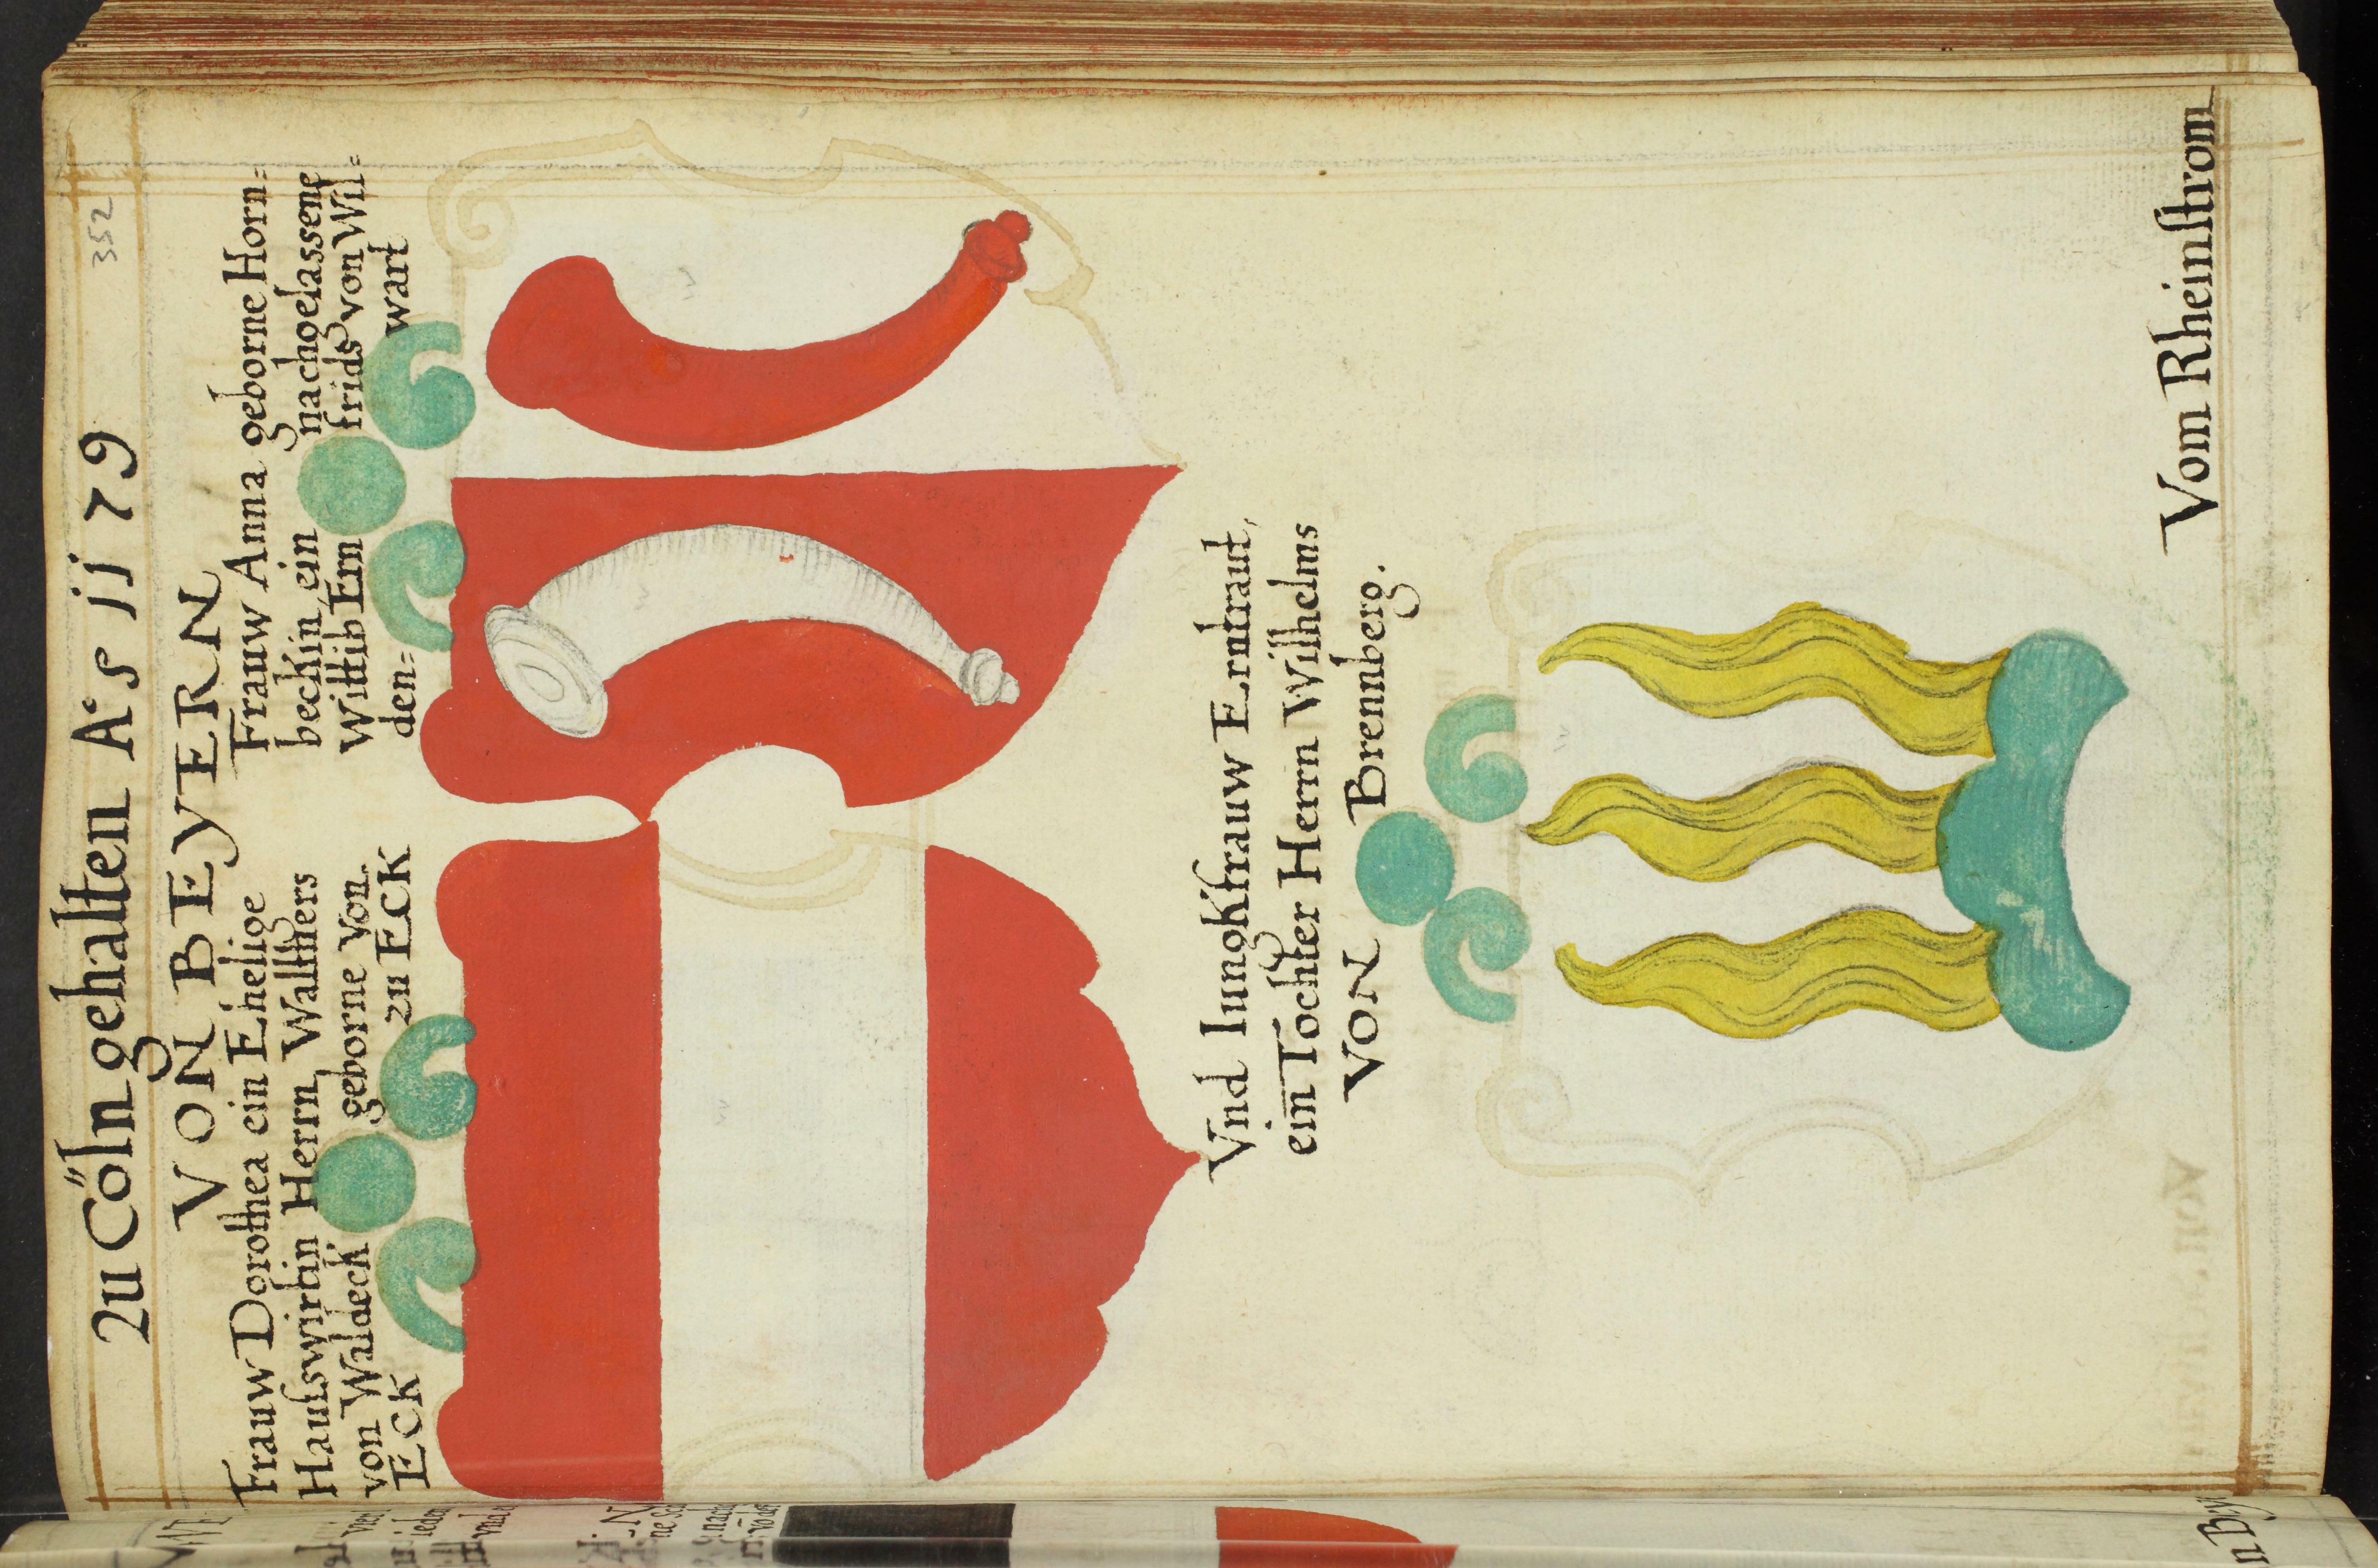 352
Zu Cöln gehalten A.° s jj79
VON BEYERN
Frauw Dorothea ein Ehelige
Hauſswirtin Herrn Walthers
von Waldeck geborne Von
ECK zu ECK
Frauw Anna geborne Horn=
beckin, ein nachgelassene
Wittib Ern frids von Wil=
den= wart
Vnd Iungkfrauw Erntraut,
ein Tochter Herrn Wilhelms
VON Brennberg.
Vom Rheinſtrom